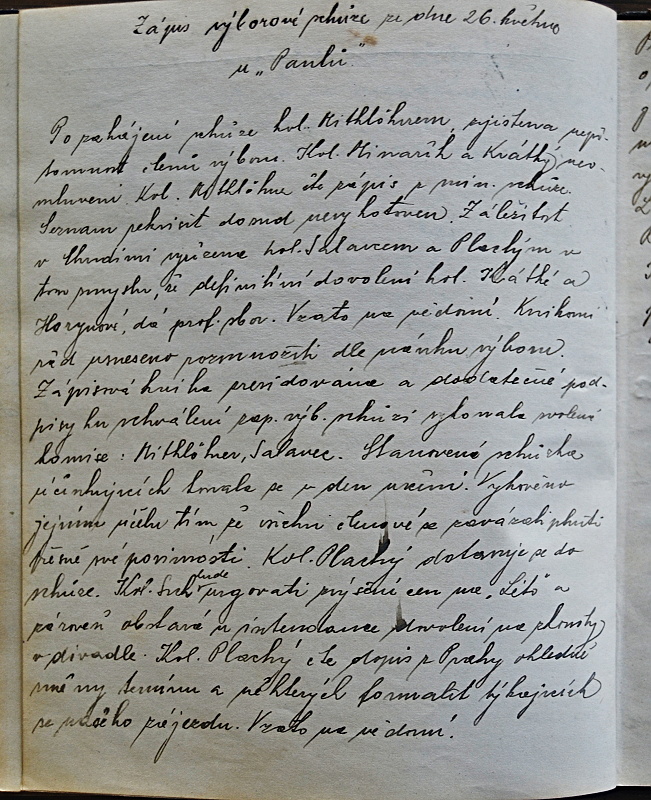 Zápis výborové schůze ze dne 26. května
u „Paulů."
Po zahájení schůze kol. Rithlöhnerem, zjištěna nepří-
tomnost členů výboru. Kol. Minařík a Krátký neo-
mluveni. Kol. Rithlöhner čte zápis z min. schůze.
Seznam rekvisit dosud nevyhotoven. Záležitost
v Chrudimi vyřízena kol. Salavcem a Plachým v
tom smyslu, že definitivní dovolení kol. Krátké a
Horynové, dá prof. sbor. Vzato na vědomí. Knihovní
řád usneseno rozmnožiti dle návrhu výboru.
Zápisová kniha presidována a dodatečné pod-
pisy ku schválení zap. výb. schůzí vykonala zvolená
komise: Rithlöhner, Salavec. Stanovená schůzka
účinkujících konala se v den určení. Vyhověno
jejímu účelu tím, že všichni členové se zavázali plniti
přesně své povinnosti. Kol. Plachý dotazuje se do
schůze. Kol. Such bude urgovati zvýšení cen na „Léto" a
zároveň obstará u intendance dovolení na zkoušky
v divadle. Kol. Plachý čte dopis z Prahy ohledně
směny termínu a některých formalit týkajících
se našeho zájezdu. Vzato na vědomí.